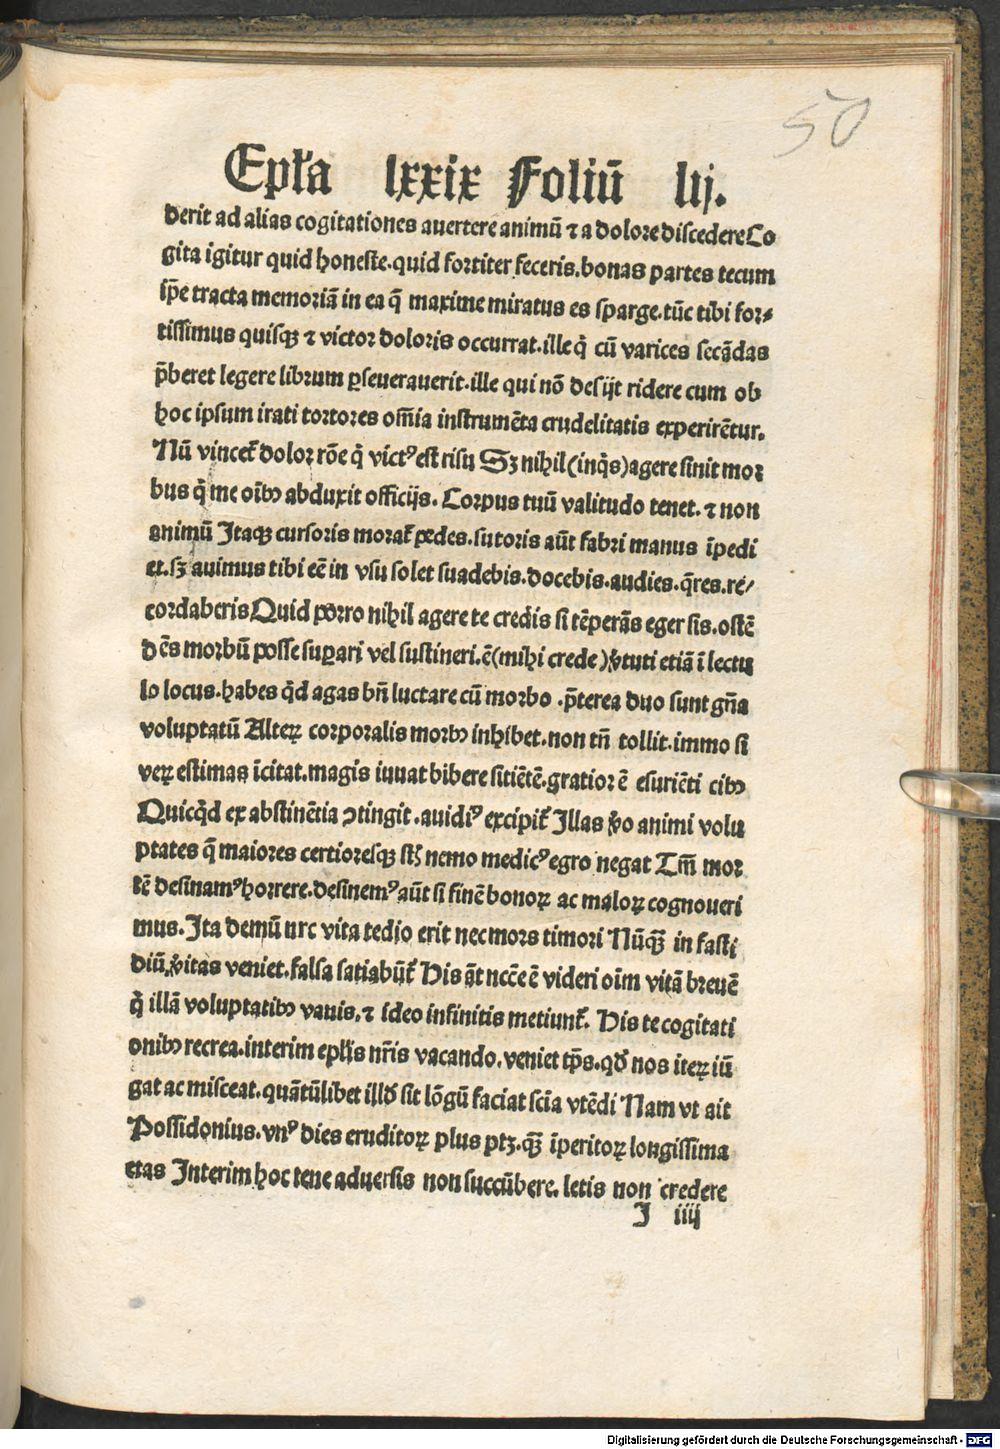 50
Epl̄a lxxix Foliū lij.
derit ad alias cogitationes auertere animū ⁊ a dolore discedere Co
gita igitur quid honeste.quid fortiter feceris.bonas partes tecum
sp̄e tracta memoriā in ea q̄ maxime miratus es sparge.tūc tibi for⸗
tissimus quisqꝫ ⁊ victor doloris occurrat.ille q̇ cū varices secādas
p̄beret legere librum ꝑseuerauerit.ille qui nō desijt ridere cum ob
hoc ipsum irati tortores om̄ia instrumēta crudelitatis experirētur.
Nū vincet᷑ dolor rōe q̇ victꝰ est risu Sꝫ nihil (inq̇s) agere sinit mor
bus q̇ me oībꝰ abduxit officijs. Corpus tuū valitudo tenet. ⁊ non
animū Itaqꝫ cursoris morat᷑ pedes.sutoris aūt fabri manus īpedi
et.sꝫ auimus tibi eē in vsu solet suadebis.docebis.audies.q̄res.re/
cordaberis Quid porro nihil agere te credis si tēperās eger sis.ostē
dēs morbū posse suꝑari vel sustineri.ē (mihi crede) v̓tuti etiā ī lectu
lo locus.habes q̇d agas bn̄ luctare cū morbo .p̄terea duo sunt gn̄a
voluptatū Alteꝝ corporalis morbꝰ inhibet.non tn̄ tollit.immo si
veꝝ estimas īcitat.magis iuuat bibere sitiētē.gratior ē esuriēti cibꝰ
Quicq̇d ex abstinētia ꝯtingit .auidiꝰ excipit᷑ Illas v̓o animi volu
ptates q̄ maiores certioresqꝫ st̄ nemo medicꝰ egro negat Tm̄ mor
tē desinamꝰ horrere.desinemꝰ aūt si finē bonoꝝ ac maloꝝ cognoueri
mus. Ita demū nrc vita tedio erit nec mors timori Nūqꝫ in fasti
diū v̓itas veniet.falsa satiabūt᷑ His āt ncc̄e ē videri oīm vitā breuē
q̇ illā voluptatibꝰ vanis.⁊ ideo infinitis metiunt᷑. His te cogitati
onibꝰ recrea.interim epl̄is nr̄is vacando.veniet tp̄s.qd̓ nos iteꝝ iū
gat ac misceat.quātūlibet illd̓ sit lōgū faciat scia vtēdi Nam vt ait
Possidonius.vnꝰ dies eruditoꝝ plus ptꝫ.qꝫ īperitoꝝ longissima
etas Interim hoc tene aduersis non succūbere. letis non credere
I iiij
Digitalisierung gefördert durch die Deutsche Forschungsgemeinschaft - DFG